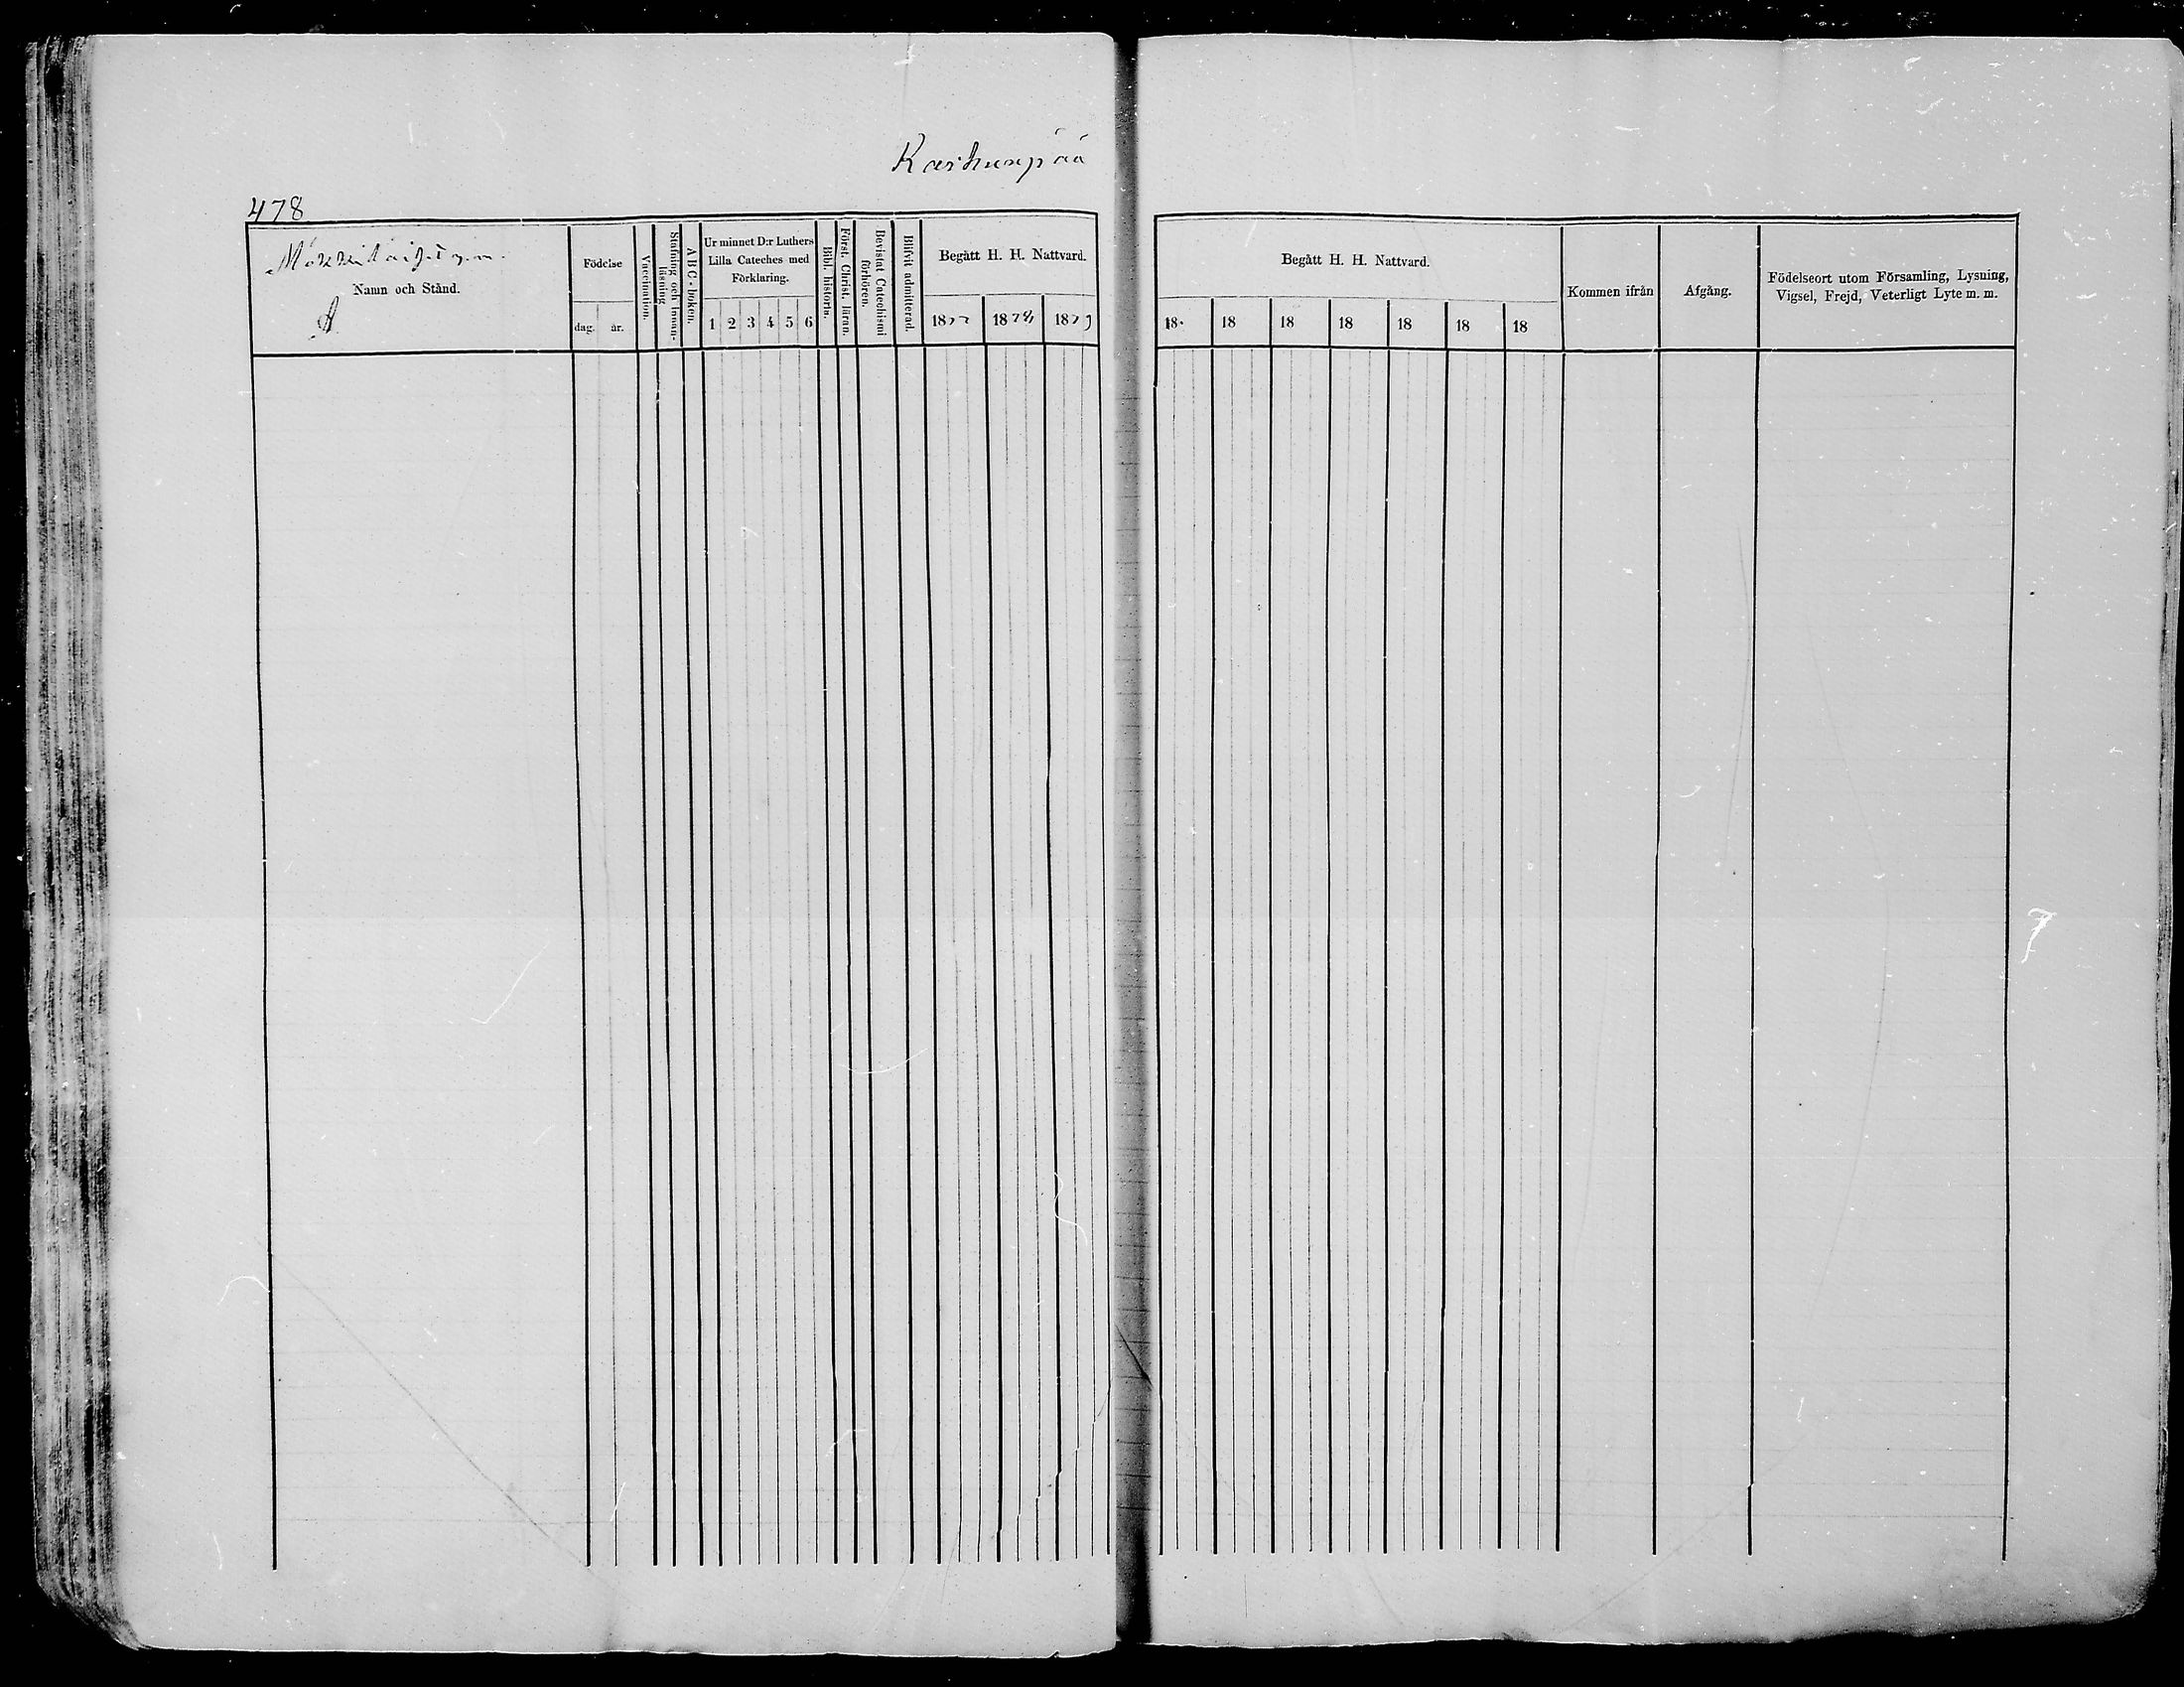 Karhunpää
478
Namn och Stånd.
A
Födelse
dag. år.
Vaccination.
Stafning och Innan-
läsning
ABC-boken.
Ur minnet D:r Luthers
Lilla Cateches med
Förklaring.
1 2 3 4 5 6
Bibl. historia.
Först. Christ. läran.
Bevistat Catechismi
förhören.
Blifvit admitterad.
Begått H. H. Nattvard.
1877 1878 1879
Begått H. H. Nattvard.
18 18 18 18 18 18 18
Kommen ifrån
Afgång.
Födelseort utom Församling, Lysning,
Vigsel, Frejd, Veterligt Lyte m. m.